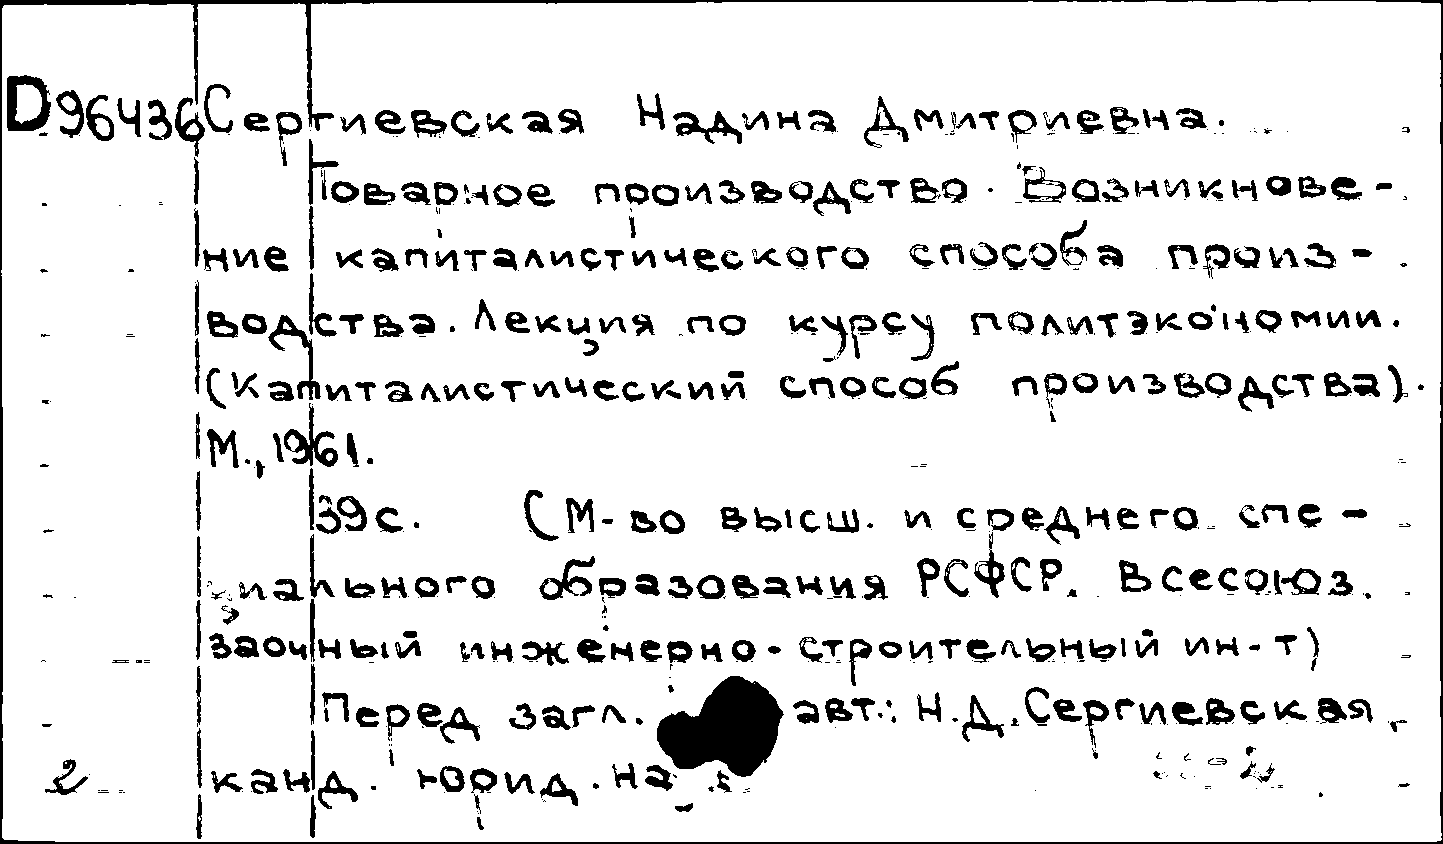 D96436 Сергиевская Надина Дмитриевна.
Товарное производство. Возникнове-
ние капиталистического способа произ-
водства. Лекция по курсу политэкономии.
(Капиталистический способ производства).
М., 1961.
39с. (М-во высш. и среднего спе-
циального образования РСФСР. Всесоюз.
заочный инженерно-строительный ин-т)
Перед загл. авт.: Н.Д. Сергиевская,
2 канд. юрид.